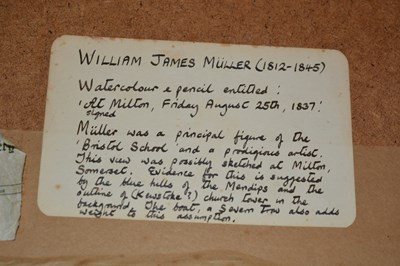 WILLIAM JAMES MÜLLER (1812-1845)
Watercolour & pencil entitled:
'At Milton, Friday August 25th, 1837.'
signed
Müller was a principal figure of the
'Bristol School' and a prodigious artist.
This view was possibly sketched at Milton,
Somerset. Evidence for this is suggested
by the blue hills of the Mendips and the
outline of (Kewstoke?) church tower in the
background. The boat, a Severn Trow also adds
weight to this assumption.